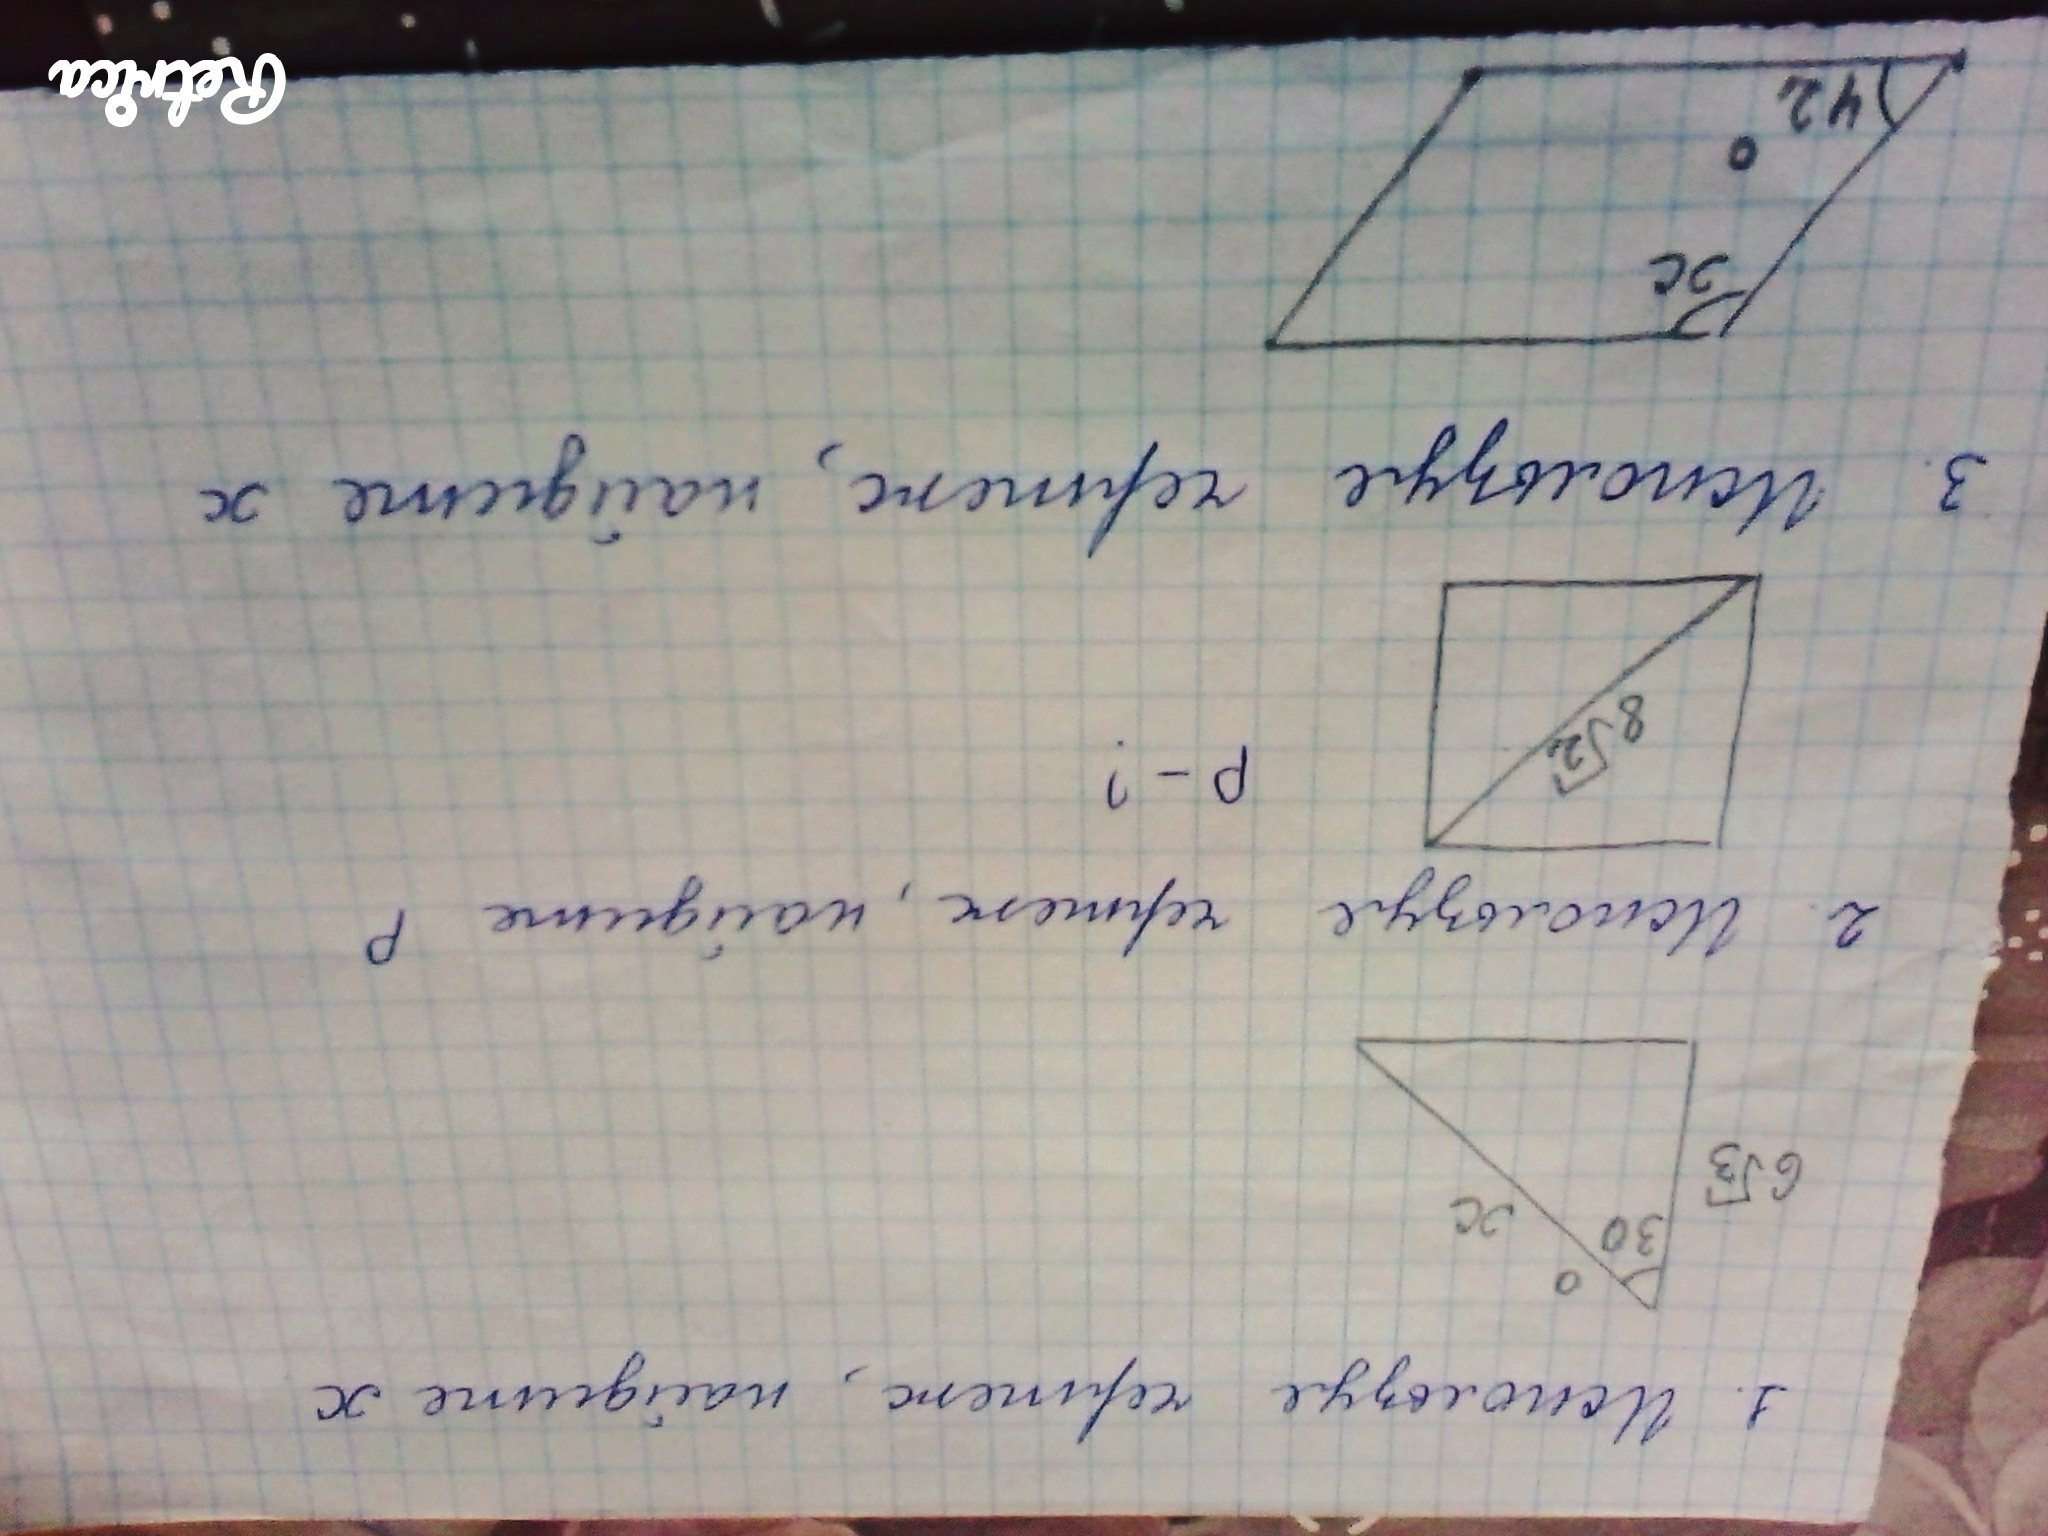 1. Используя чертеж, найдите x
30°
6√3
x
2. Используя чертеж, найдите P
8√2
P - ?
3. Используя чертеж, найдите x
x
42°
Retrica